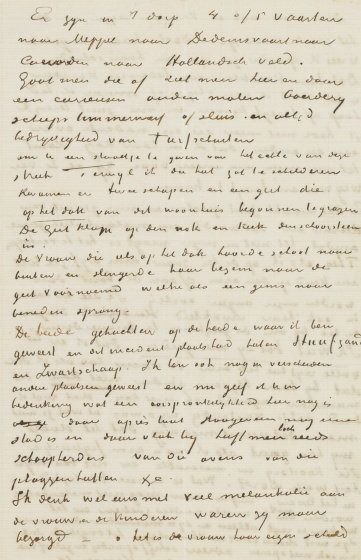 Er zyn in 't dorp 4 of 5 vaarten
naar Meppel naar Dedemsvaart naar
Coevorden naar Hollandsch veld.
men die af ziet men hier en daar
een curieusen ouden molen boerdery
scheepstimmerwerf of sluis. en altyd
bedryvigheid van turfschuiten
om u een staaltje te geven van het echte van deze
streek terwyl ik da hut zat te schilderen
kwamen er twee schapen en een geit die
op het dak van dit woonhuis begonnen te grazen
De Geit klom op den nok en keek de schoorsteen
in.
De vrouw die iets op het dak hoorde schoot naar
buiten en slingerde haar bezem naar de
geit voornoemd welke als een gems naar
beneden sprong.
De beide gehuchten op de heide waar ik ben
geweest en dit incident plaats had heeten Stuifzand
en Zwartschaap. Ik ben ook nog in verscheiden
andere plaatsen geweest en nu geef ik u in
bedenking wat een oorspronkelykheid hier nog is
daar après tout Hoogeveen nog eene
stad is en daar vlak by heeft men toch reeds
schaapherders van die ovens van die
plaggenhutten &c.
Ik denk wel eens met veel melankolie aan
de vrouw & de kinderen waren zy maar
bezorgd – o het is de vrouw haar eigen schuld